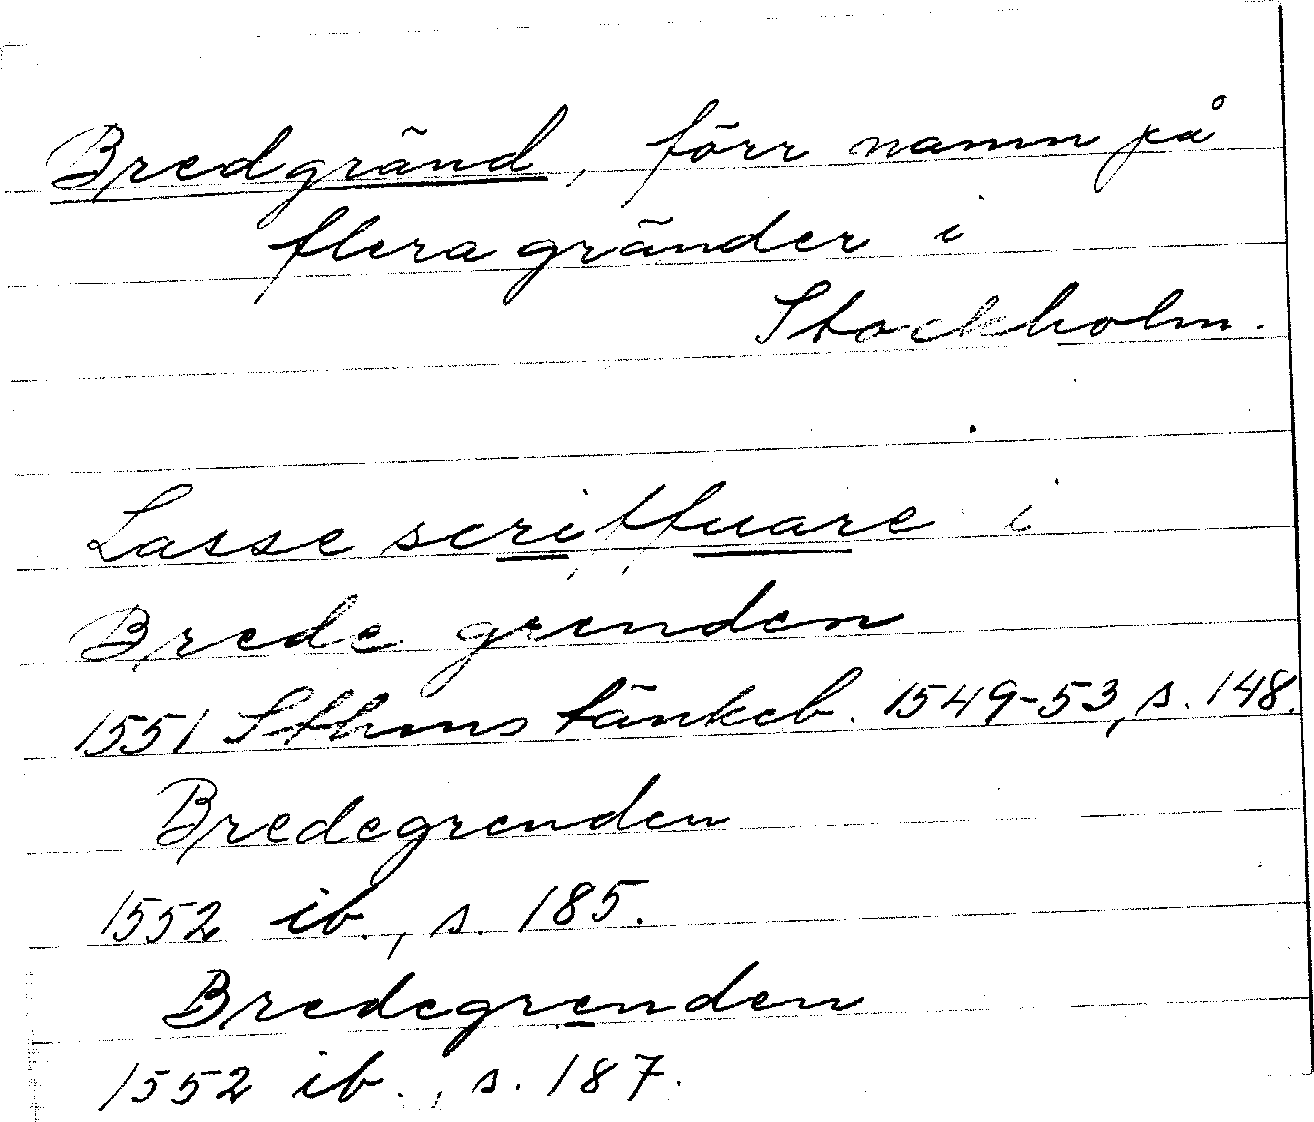 Bredgränd, förr namn på
flera gränder i
Stockholm.
Lasse scriffuare i
Brede grenden
1551 Sthms tänkeb. 1549-53, s. 148.
Bredegrenden
1552 ib., s. 185.
Bredegrenden
1552 ib., s. 187.